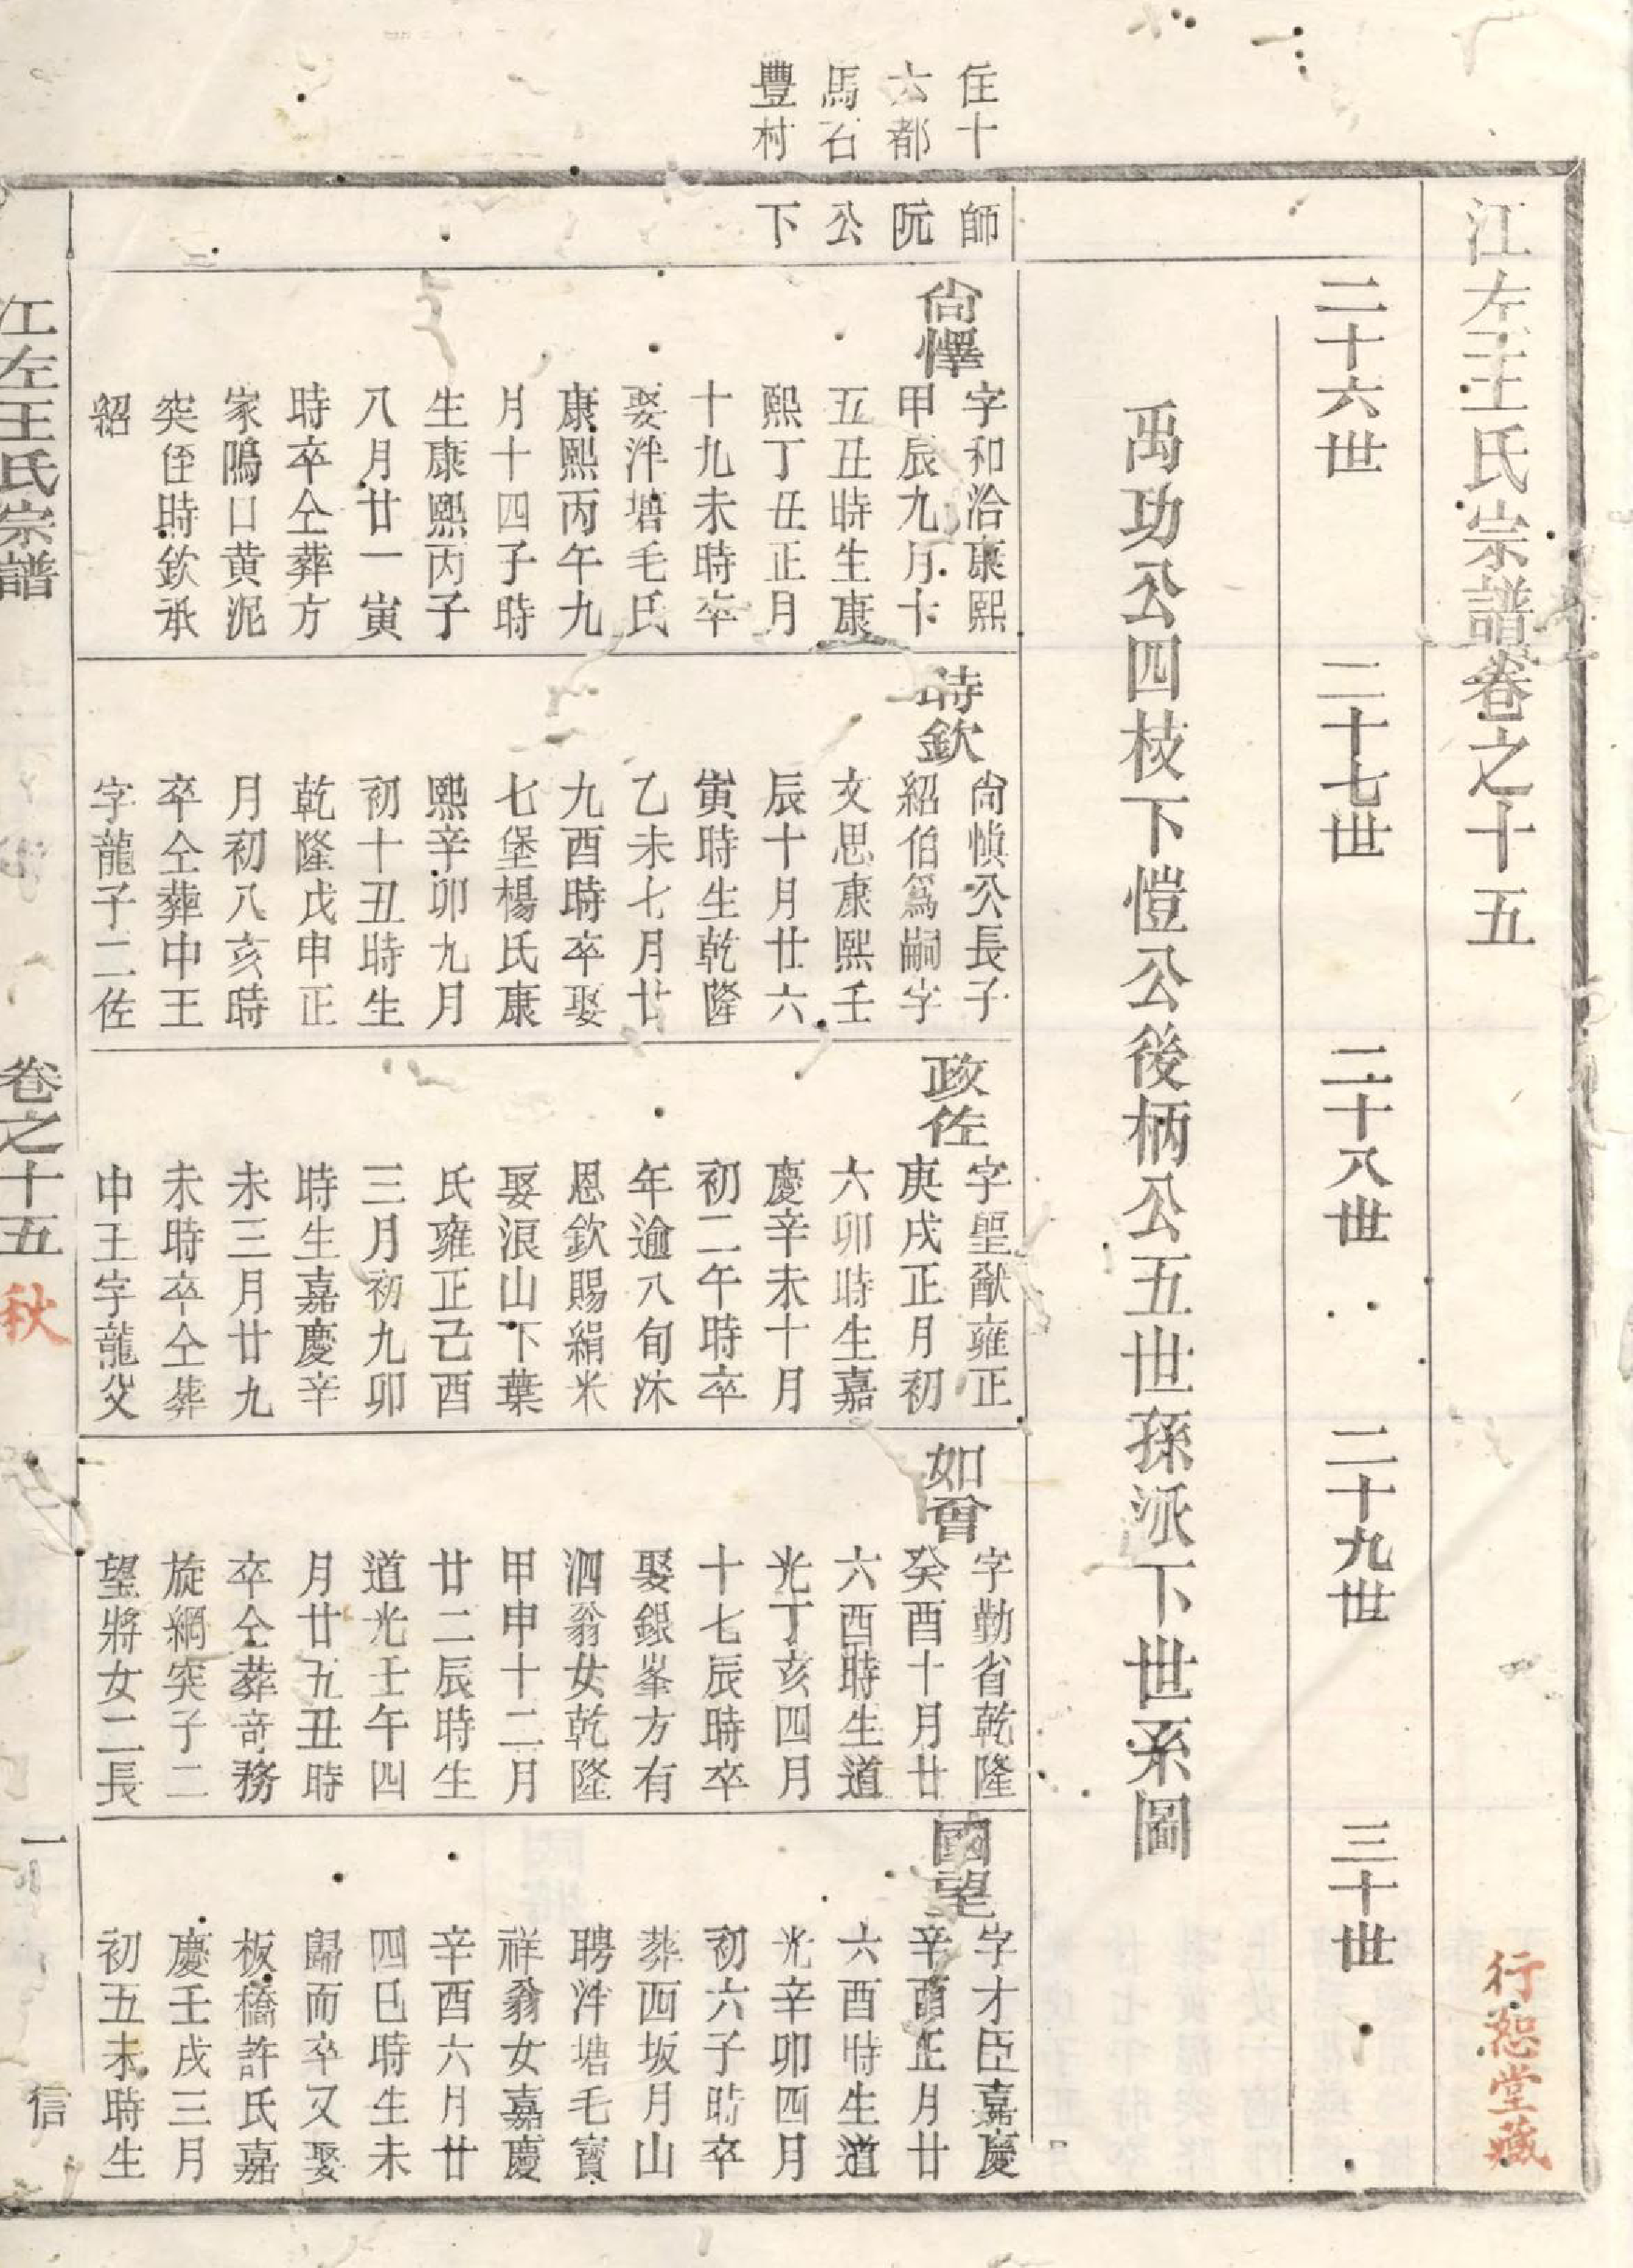 江左王氏宗譜卷之十五
行恕堂藏
二十六世
二十七世
二十八世
二十九世
三十世
禹功公四枝下愷公後柄公五世孫派下世系圖
住十
六都
馬石
豐村
師阮公下
尙懌
字和洽康熙
甲辰九月十
五丑時生康
熙丁丑正月
十九未時卒
娶泮塘毛氏
康熙丙午九
月十四子時
生康熙丙子
八月廿一寅
時卒仝葬方
家隝口黄泥
突侄時欽承
紹
時欽
尙慎公長子
紹伯爲嗣字
文思康熙壬
辰十月廿六
寅時生乾隆
乙未七月廿
九酉時卒娶
七堡楊氏康
熙辛卯九月
初十丑時生
乾隆戊申正
月初八亥時
卒仝葬中王
字龍子二佐
政佐
字聖猷雍正
庚戌正月初
六卯時生嘉
慶辛未十月
初二午時卒
年逾八旬沐
恩欽賜絹米
娶浪山下葉
氏雍正己酉
三月初九卯
時生嘉慶辛
未三月廿九
未時卒仝葬
中王字龍父
如會
字勤省乾隆
癸酉十月廿
六酉時生道
光丁亥四月
十七辰時卒
娶銀峯方有
泗翁女乾隆
甲申十二月
廿二辰時生
道光壬午四
月廿五丑時
卒仝葬奇務
旋網突子二
望將女二長
國望
字才臣嘉慶
辛酉正月廿
六酉時生道
光辛卯四月
初六子時卒
葬西坂月山
聘泮塘毛寶
祥翁女嘉慶
辛酉六月廿
四巳時生未
歸而卒又娶
板橋許氏嘉
慶壬戌三月
初五未時生
江左王氏宗譜
卷之十五
秋
一
信